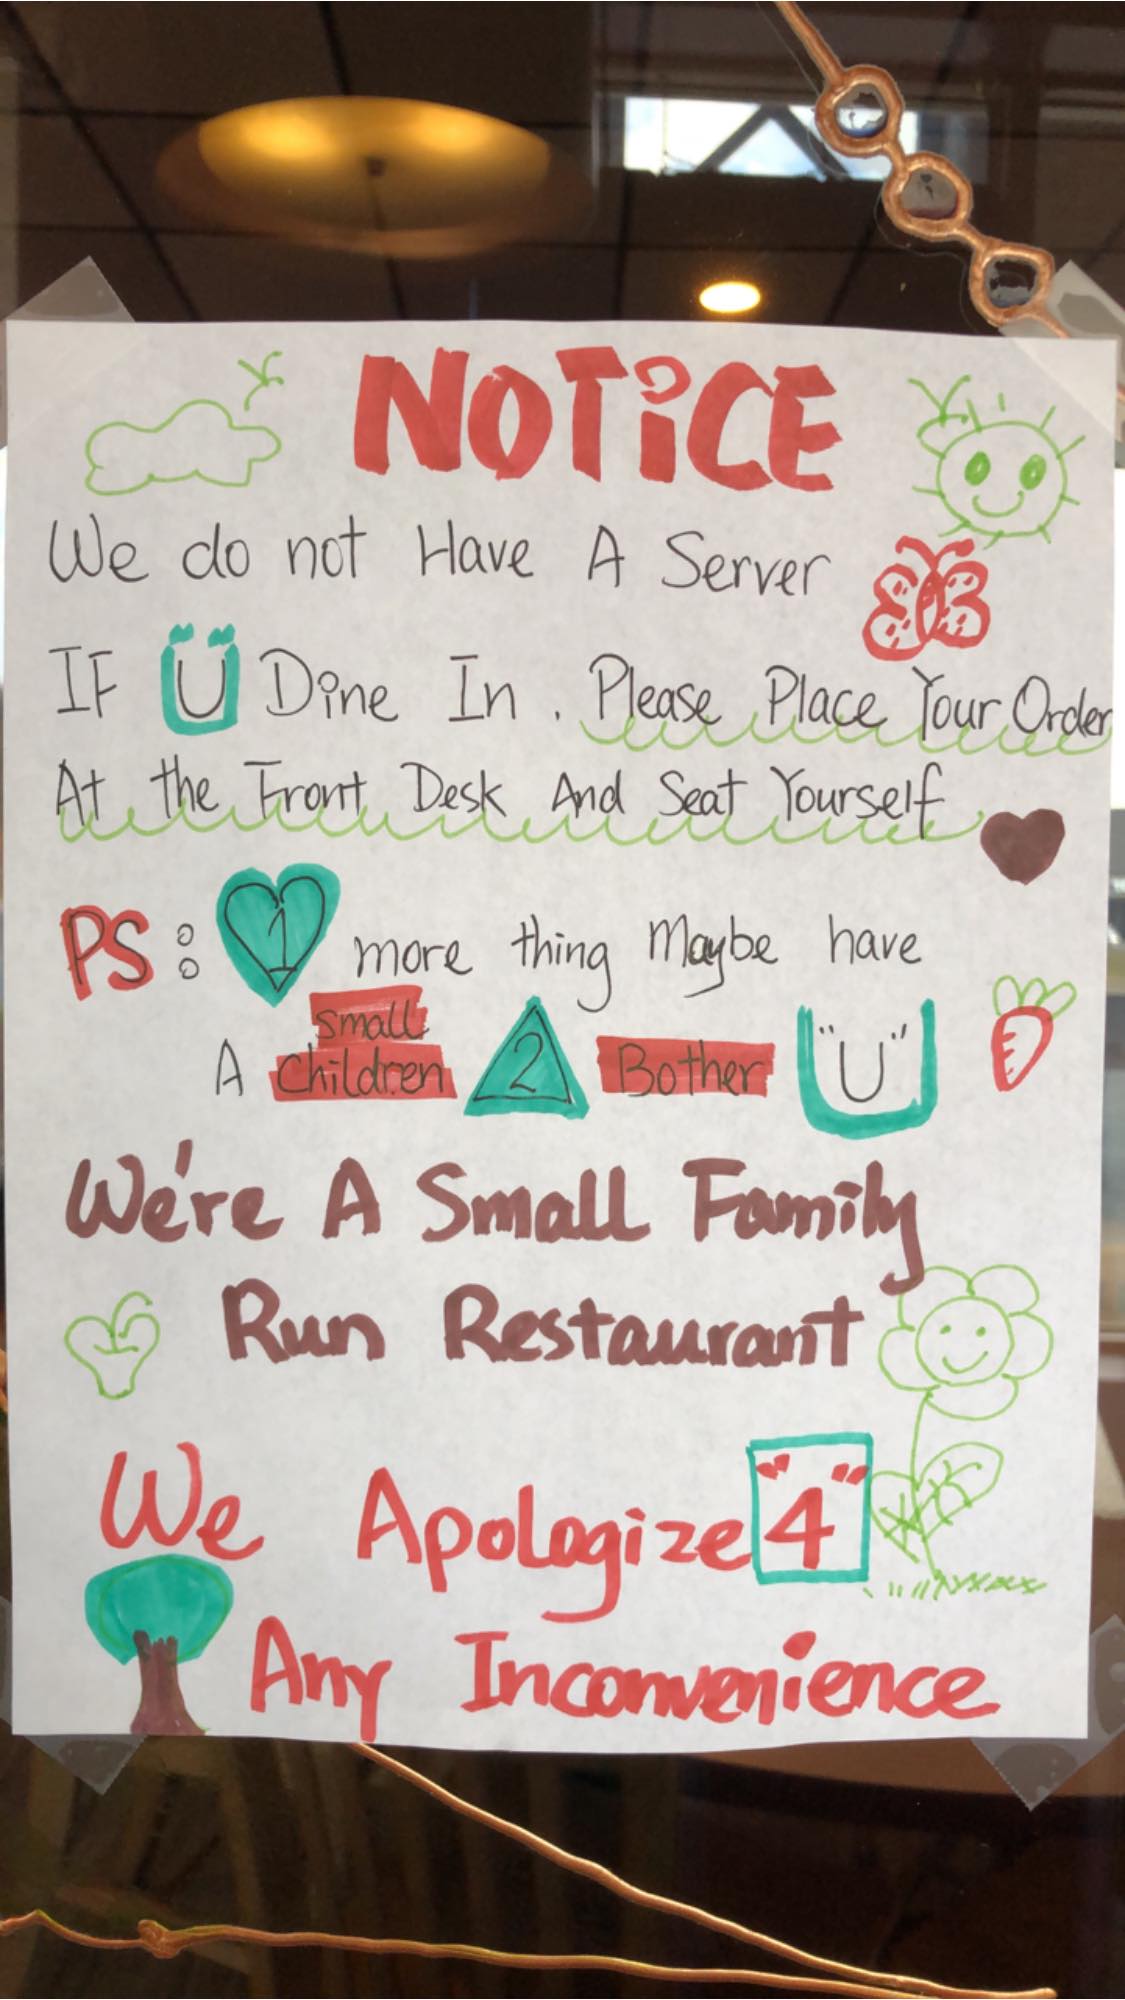 NOTiCE
We do not Have A Server
IF U Dine In. Please Place Your Order
At the Front Desk And Seat Yourself
PS: 1 more thing Maybe have
A small children 2 Bother "U"
We're A Small Family
Run Restaurant
We Apologize "4"
Any Inconvenience